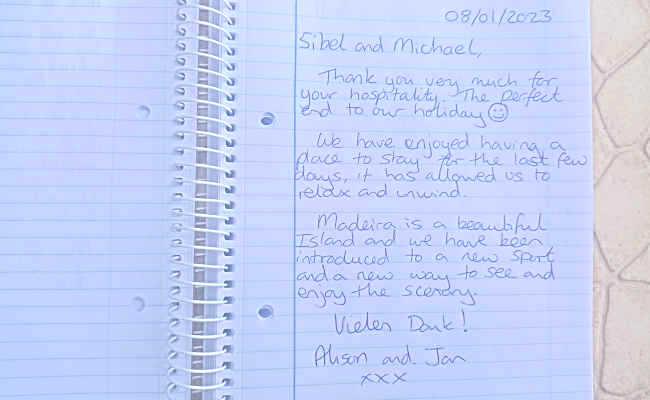 08/01/2023
Sibel and Michael,
Thank you very much for
your hospitality. The perfect
end to our holiday ☺
We have enjoyed having a
place to stay for the last few
days, it has allowed us to
relax and unwind.
Madeira is a beautiful
Island and we have been
introduced to a new sport
and a new way to see and
enjoy the scenery.
Vielen Dank!
Alison and Jan
xxx